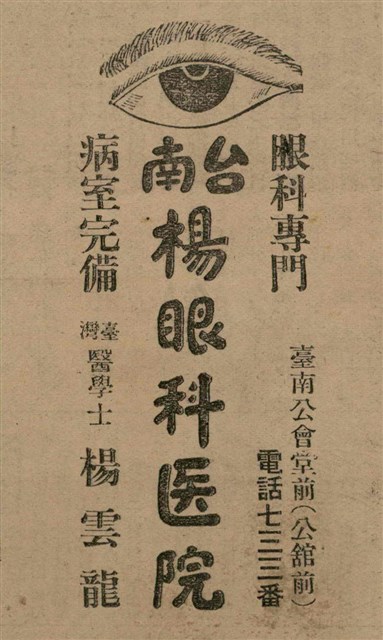 眼科專門
臺南公會堂前(公舘前)
電話七二二番
台南楊眼科医院
病室完備
臺灣醫學士 楊雲龍